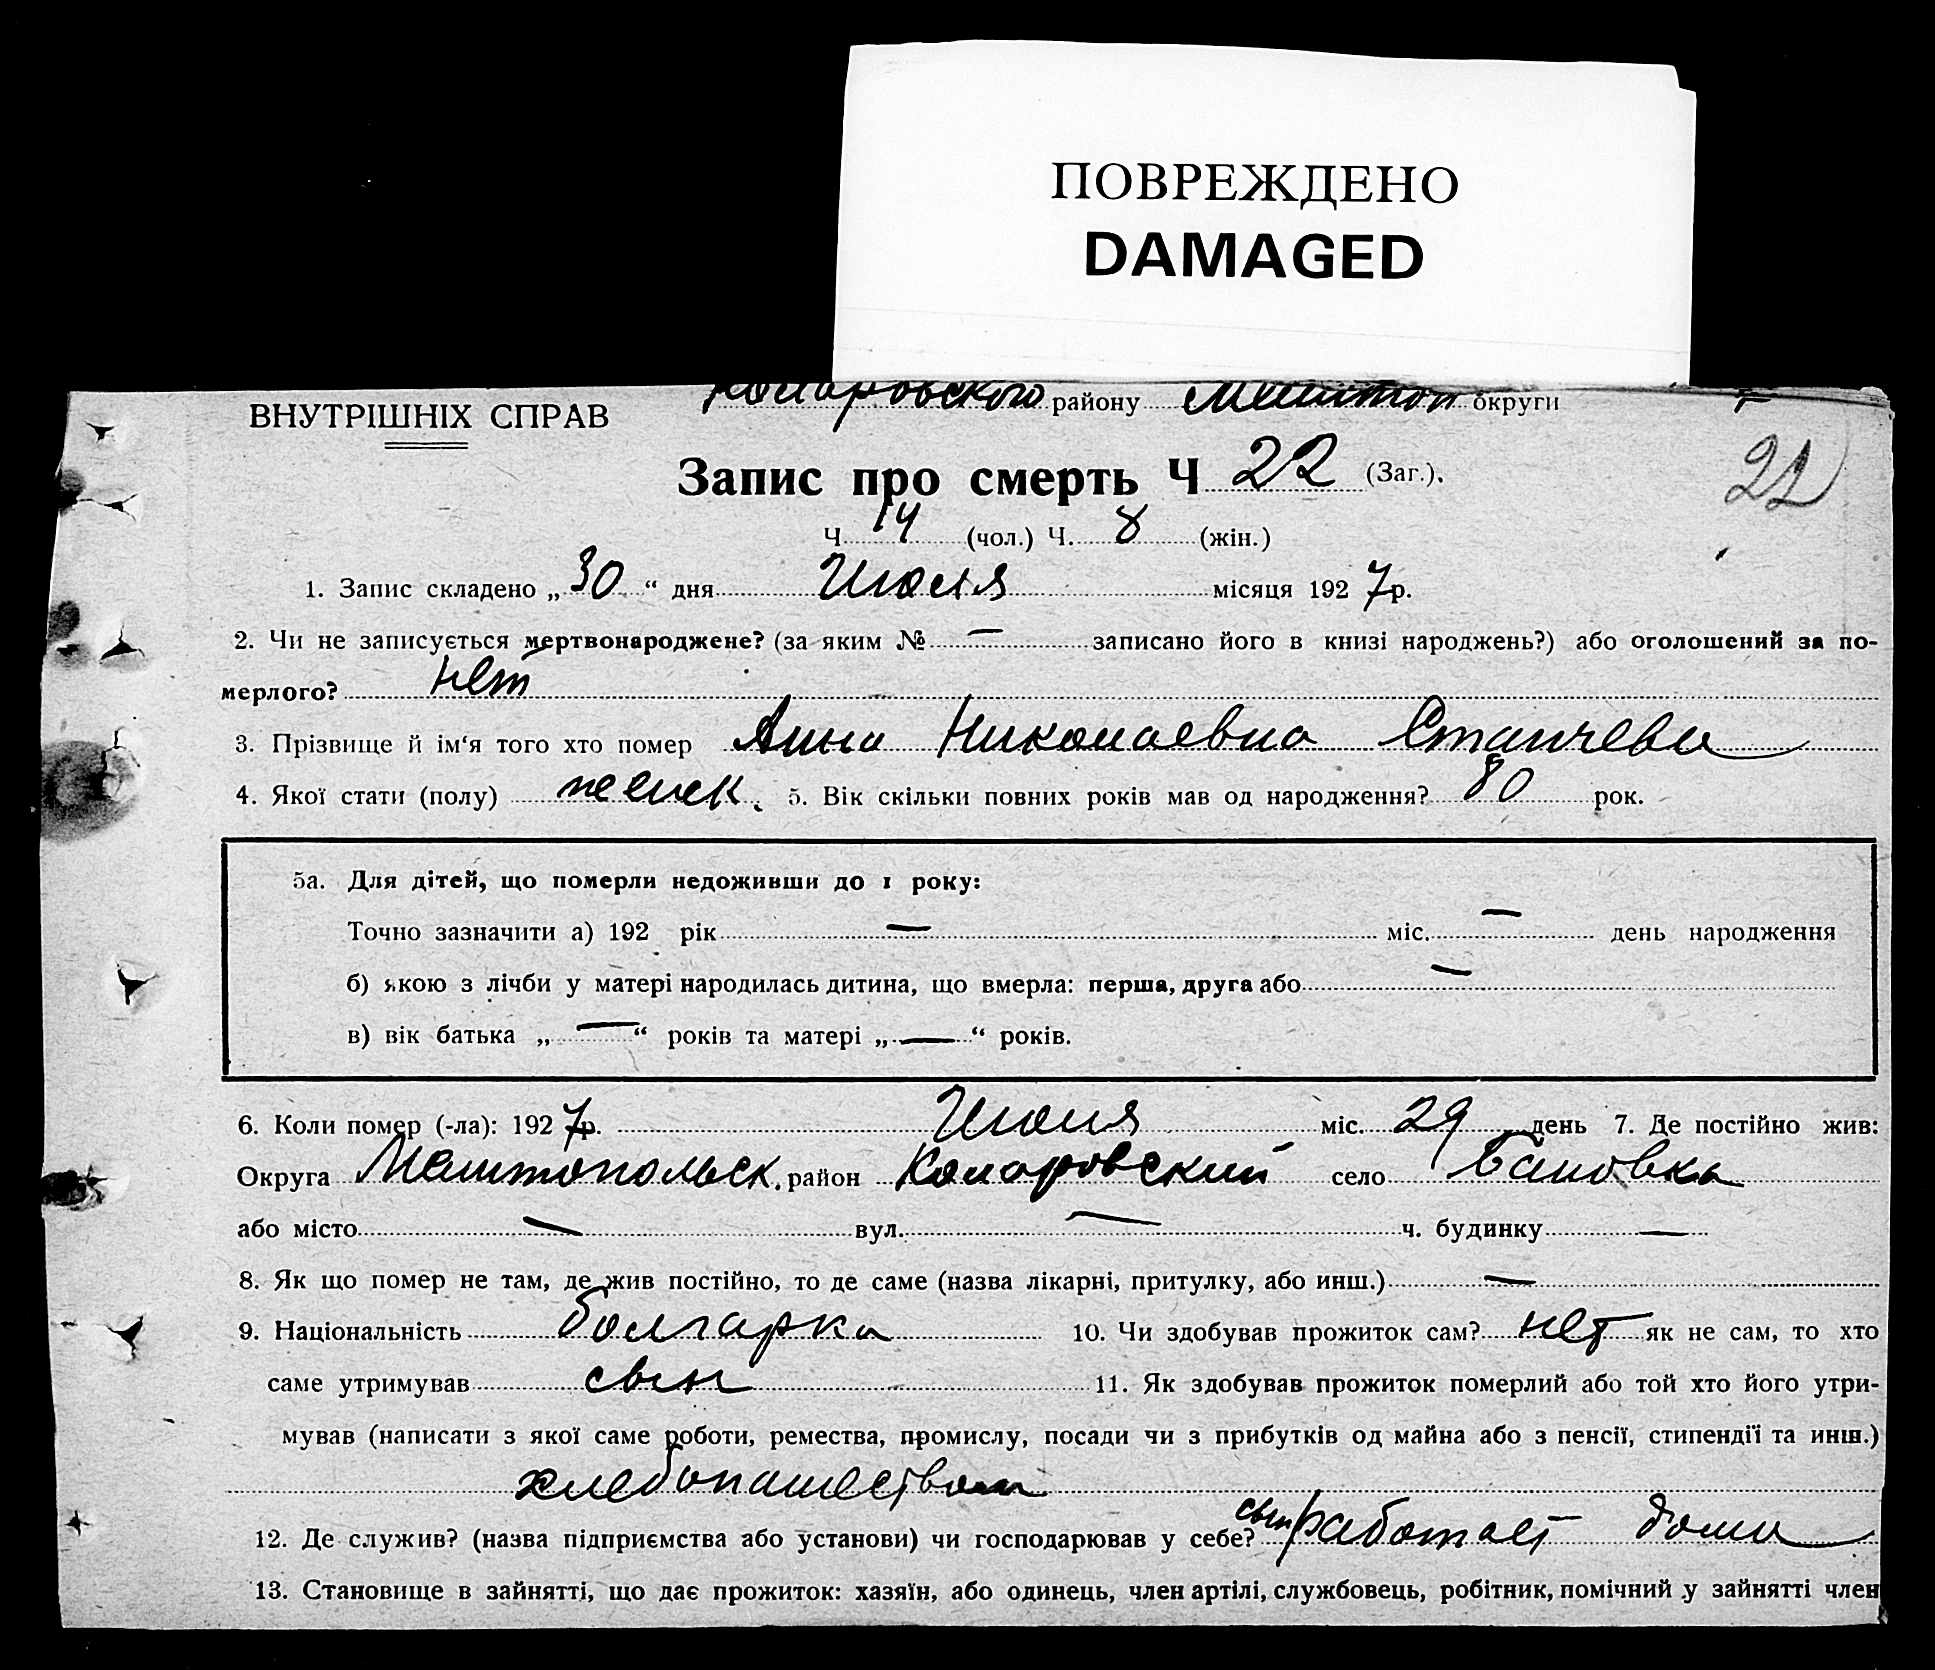 ПОВРЕЖДЕНО
DAMAGED
ВНУТРІШНІХ СПРАВ
Коларовского району Мелитоп округи
Запис про смерть Ч 22 (Заг.).
21
Ч 14 (чол.) Ч. 8 (жін.)
1. Запис складено „30“ дня Июля місяця 1927р.
2. Чи не записується мертвонароджене? (за яким № — записано його в книзі народжень?) або оголошений за по-
мерлого? Нет
3. Прізвище й ім‘я того хто помер Анна Николаевна Станчева
4. Якої стати (полу) женск. 5. Вік скільки повних років мав од народження? 80 рок.
5а. Для дітей, що померли недоживши до 1 року:
Точно зазначити а) 192 рік — міс. — день народження
б) якою з лічби у матері народилась дитина, що вмерла: перша, друга або —
в) вік батька „—“ років та матері „—“ років.
6. Коли помер (-ла): 1927р. Июля міс. 29 день 7. Де постійно жив:
Округа Мелитопольск. район Коларовский село Бановка
або місто — вул. — ч. будинку —
8. Як що помер не там, де жив постійно, то де саме (назва лікарні, притулку, або инш.) —
9. Національність болгарка 10. Чи здобував прожиток сам? нет як не сам, то хто
саме утримував сын 11. Як здобував прожиток померлий або той хто його утри-
мував (написати з якої саме роботи, ремества, промислу, посади чи з прибутків од майна або з пенсії, стипендії та инш.)
хлебопашеством
12. Де служив? (назва підприємства або установи) чи господарював у себе? сын работает дома
13. Становище в зайнятті, що дає прожиток: хазяїн, або одинець, член артілі, службовець, робітник, помічний у зайнятті член